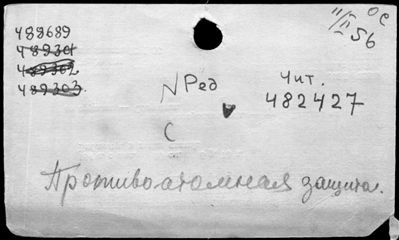 489689
489301
489302
489303
ОС
11/II 56
NРед
Чит.
482427
С
Противоатомная защита.